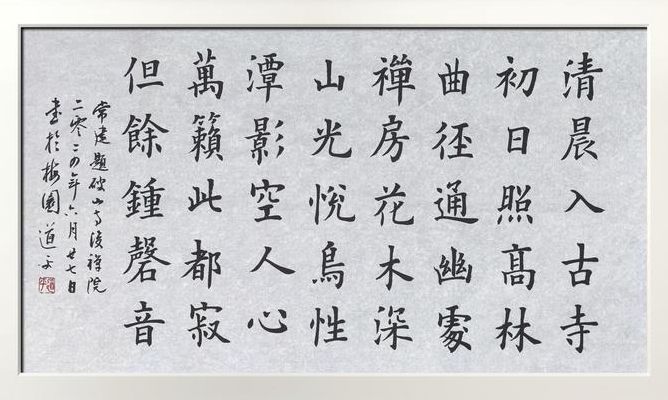 清晨入古寺
初日照髙林
曲径通幽處
禪房花木深
山光悅鳥性
潭影空人心
萬籟此都寂
但餘鍾磬音
常建題破山寺後禅院
二零二四年六月廿七日
書於梅園道